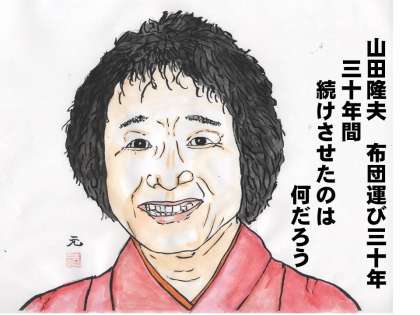 山田隆夫　布団運び三十年
三十年間
続けさせたのは
何だろう
元